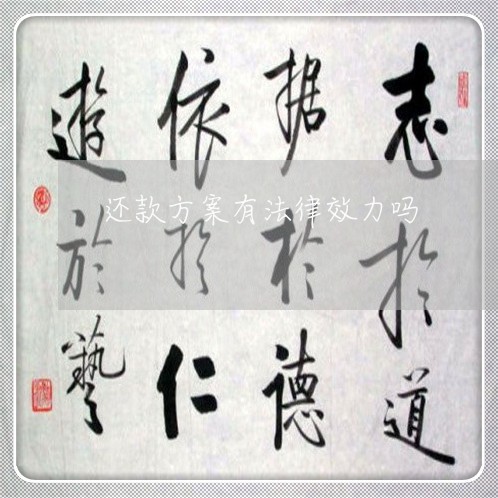 志於道
据於德
依於仁
遊於藝
还款方案有法律效力吗